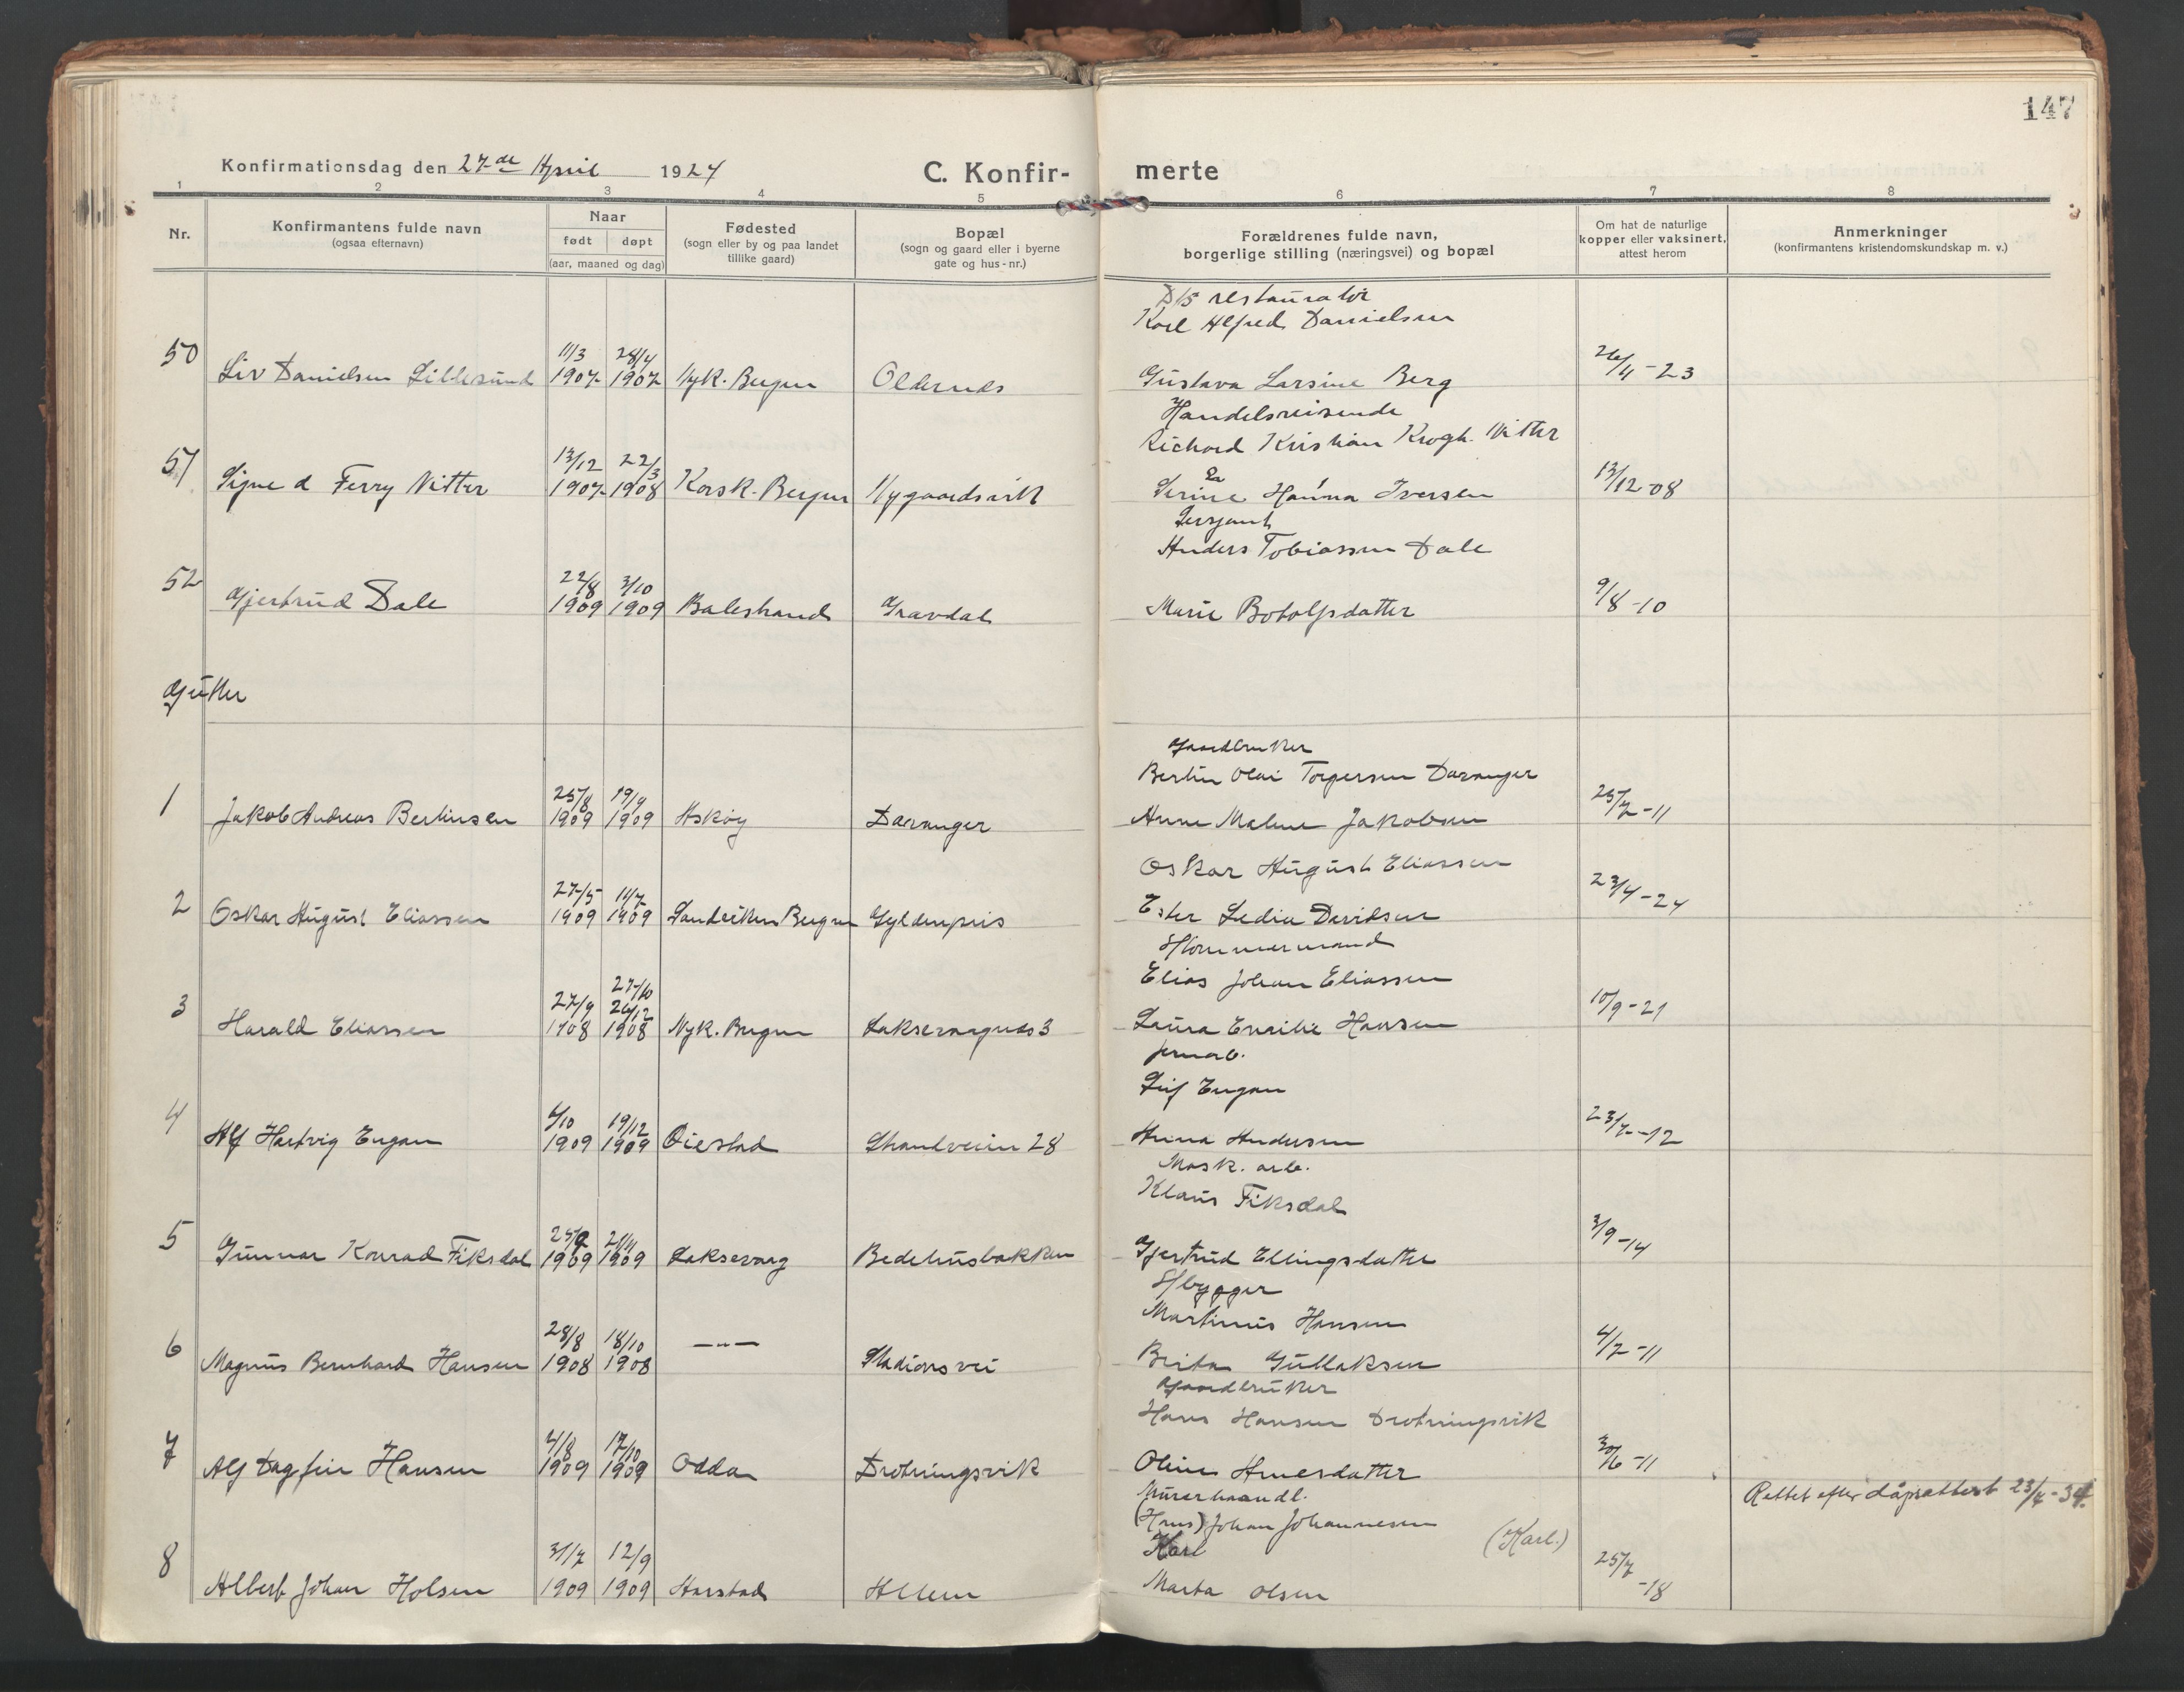 147
Konfirmationsdag den 27-de April 1924
C. Konfir-merte
1 2 3 4 5 6 7 8
Nr.
Konfirmantens fulde navn
(ogsaa efternavn)
Naar
født døpt
(aar, maaned og dag)
Fødested
(sogn eller by og paa landet
tillike gaard)
Bopæl
(sogn og gaard eller i byerne
gate og hus-nr.)
Forældrenes fulde navn,
borgerlige stilling (næringsvei) og bopæl
Om hat de naturlige
kopper eller vaksinert,
attest herom
Anmerkninger
(konfirmantens kristendomskundskap m. v.)
D/S restauratør
Karl Alfred Danielsen
50 Liv Danielsen Lillesund 11/3 1907 28/4 1907 Nyk. Bergen Oldernes Gustava Larsine Berg 26/4-23
Handelsreisende
Richard Kristian Krogh Nitter
51 Signe d Ferry Nitter 13/12 1907 22/3 1908 Korsk. Bergen Nygaardsvik Serine Hanna Iversen 13/12-08
Sersjant
Anders Tobiassen Dale
52 Gjertrud Dale 22/8 1909 3/10 1909 Balestrand Gravdal Marie Botolfsdatter 9/8-10
Gutter
Gaardbruker
Bertin Olai Torgersen Daranger
1 Jakob Andreas Bertinsen 25/8 1909 19/9 1909 Askøy Daranger Anne Malene Jakobsen 25/7-11
Oskar August Eliassen
2 Oskar August Eliassen 27/5 1909 11/7 1909 Sandviken Bergen Gyldenpris Ester Ledia Davidsen 23/4-24
Tømmermand
Elias Johan Eliassen
3 Harald Eliassen 27/9 1908 27/10 26/12 1908 Nyk. Bergen Laksevaagnes 3 Laura Emilie Hansen 10/9-21
jernarb.
Leif Engan
4 Alf Hartvig Engan 6/10 1909 19/12 1909 Øiestad Strandveien 28 Anna Andersen 23/7-12
Mask. arb.
Klaus Fiksdal
5 Gunnar Konrad Fiksdal 25/9 1909 21/11 1909 Laksevaag Bedehusbakken Gjertrud Ellingsdatter 3/9-14
S/bygger
Martinus Hansen
6 Magnus Bernhard Hansen 28/8 1908 18/10 1908 —"— Stadionsvei Berta Gullaksen 4/7-11
Gaardbruker
Hans Hansen Drotningsvik
7 Alf Dagfin Hansen 4/8 1909 17/10 1909 Odda Drotningsvik Oline Arnesdatter 30/6-11
Murerhaandl.
Rettet efter dåpsattest 23/4-34.
(Hans) Johan Johannesen
Karl (Karl.)
8 Albert Johan Holsen 31/7 1909 12/9 1909 Harstad Allern Marta Olsen 25/7-18